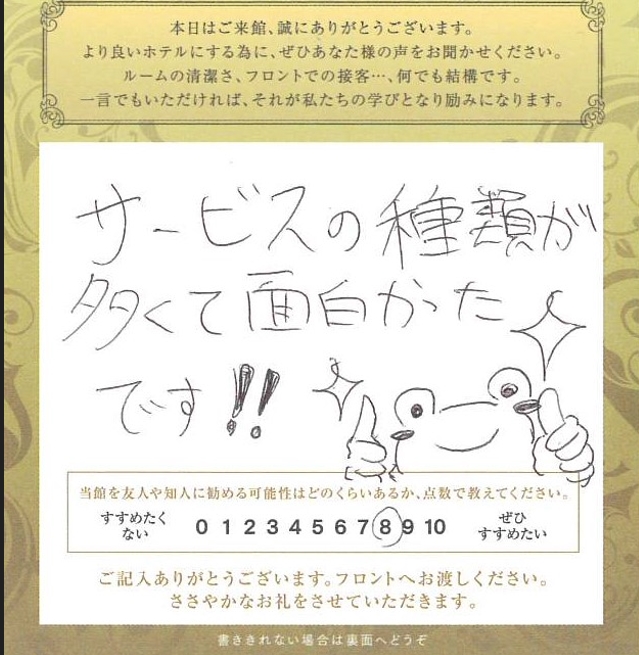 本日はご来館、誠にありがとうございます。
より良いホテルにする為に、ぜひあなた様の声をお聞かせください。
ルームの清潔さ、フロントでの接客…、何でも結構です。
一言でもいただければ、それが私たちの学びとなり励みになります。
サービスの種類が
多くて面白かった
です!!
当館を友人や知人に勧める可能性はどのくらいあるか、点数で教えてください。
すすめたくない 0 1 2 3 4 5 6 7 8 9 10 ぜひすすめたい
ご記入ありがとうございます。フロントへお渡しください。
ささやかなお礼をさせていただきます。
書ききれない場合は裏面へどうぞ